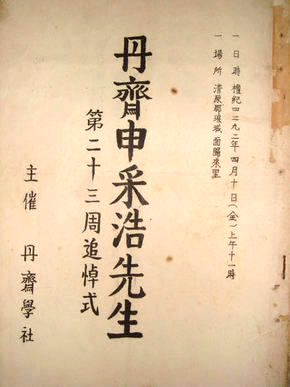 一 日時 檀紀四二九二年四月十日(金)上午十一時
一 場所 清原郡琅城面歸來里
丹齋申采浩先生
第二十三周追悼式
主催 丹齋學社